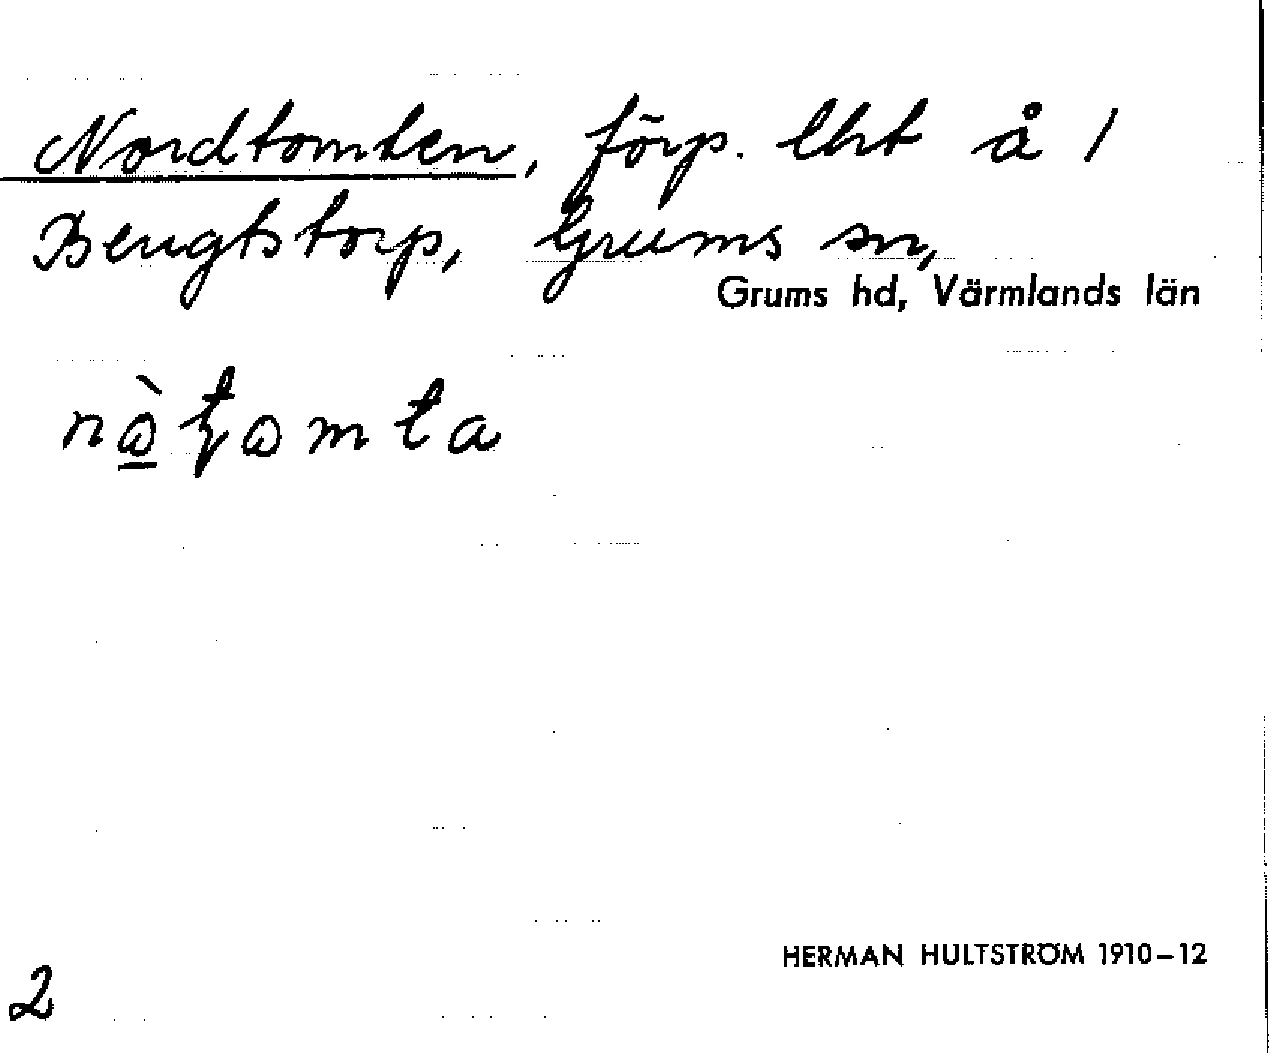 Nordtomten, förp. lht å 1
Bengtstorp, Grums sn,
Grums hd, Värmlands län
HERMAN HULTSTRÖM 1910–12
2